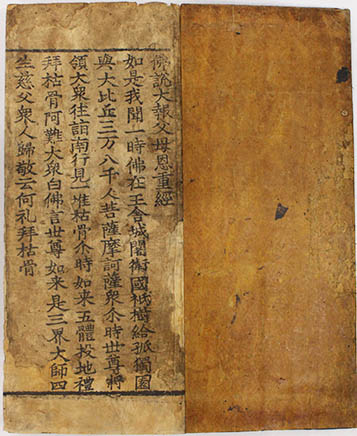 佛說大報父母恩重經
如是我聞一時佛在王舍城闍衛國祇樹給孤獨園
與大比丘三万八千人菩薩摩訶薩衆尒時世尊將
領大衆往詣南行見一堆枯骨尒時如来五體投地禮
拜枯骨阿難大衆白佛言世尊如来是三界大師四
生慈父衆人歸敬云何礼拜枯骨